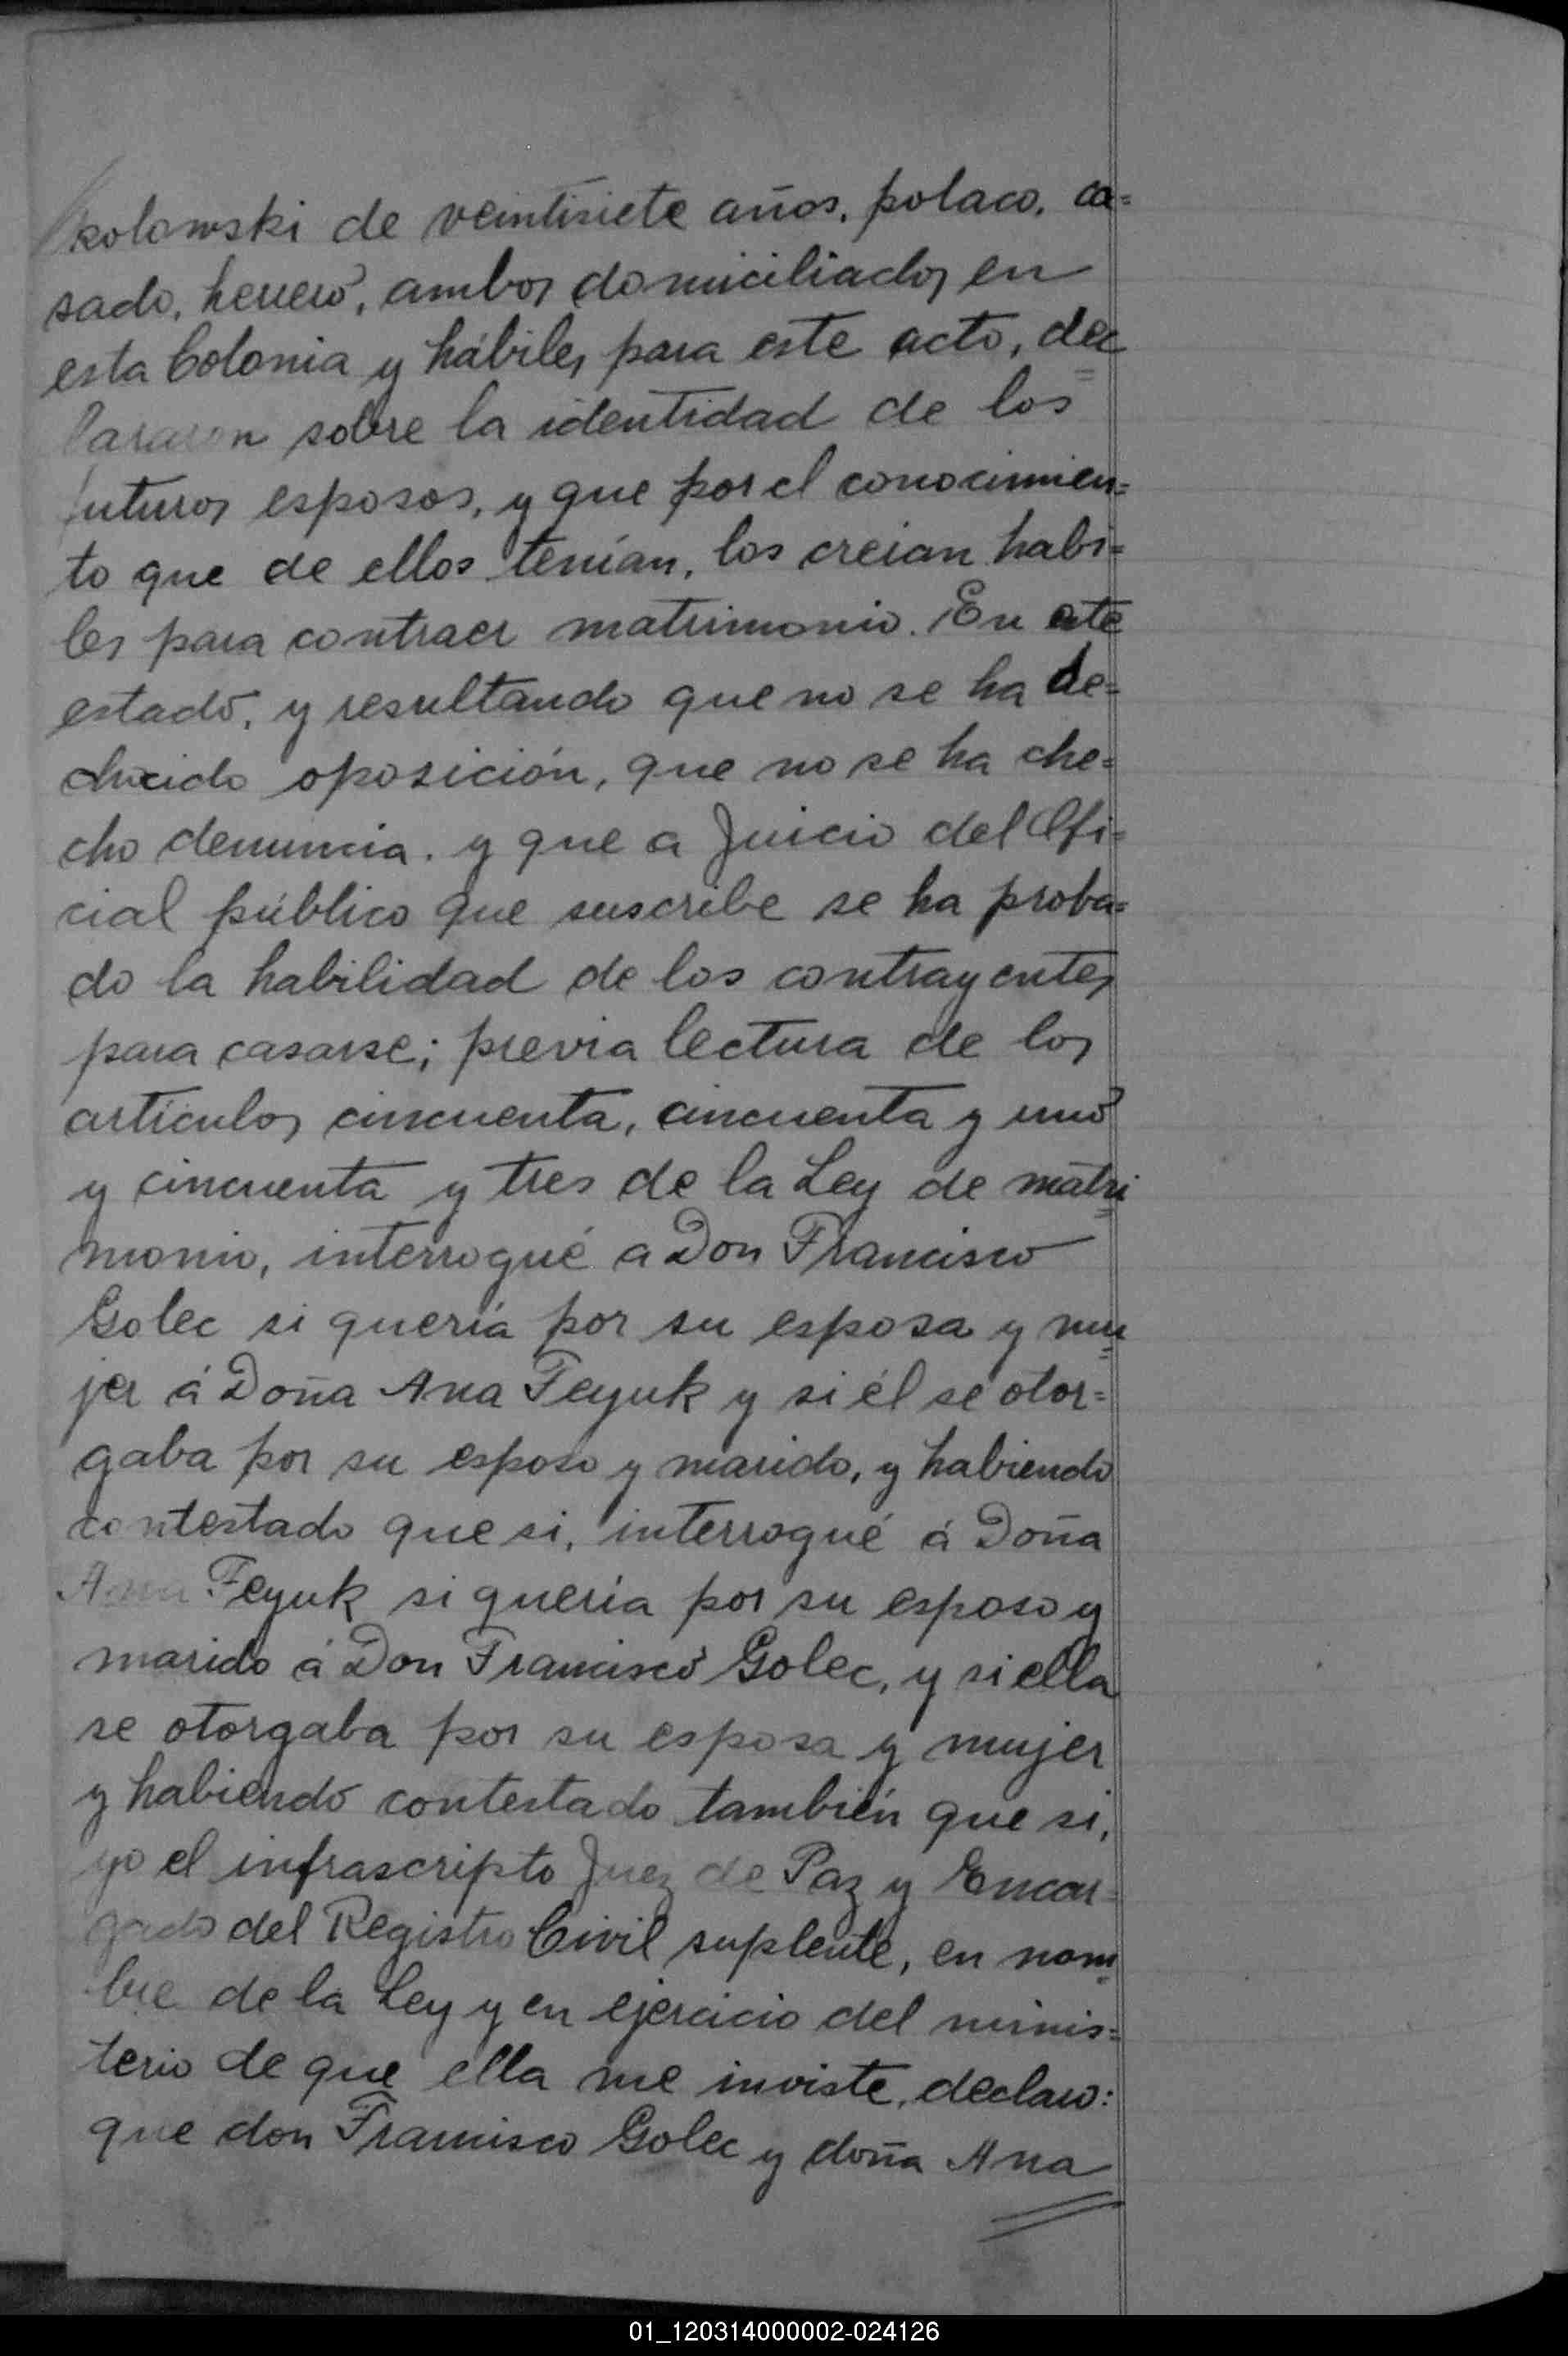 kolowski de veintisiete años, polaco, ca=
sado, herrero, ambos domiciliados en
esta Colonia y hábiles para este acto, dec
lararon sobre la identidad de los
futuros esposos, y que por el conocimien=
to que de ellos tenían, los creian habi=
les para contraer matrimonio. En este
estado, y resultando que no se ha de=
ducido oposición, que no se ha che=
cho denuncia. y que a Juicio del Ofi=
cial público que suscribe se ha proba=
do la habilidad de los contrayentes
para casarse; previa lectura de los
artículos cincuenta, cincuenta y uno
y cincuenta y tres de la Ley de matri=
monio, interrogué a Don Francisco
Golec si quería por su esposa y mu=
jer á Doña Ana Feyuk y si él se otor=
gaba por su esposo y marido, y habiendo
contestado que si, interrogué á Doña
Ana Feyuk si quería por su esposo y
marido á Don Francisco Golec, y si ella
se otorgaba por su esposa y mujer
y habiendo contestado también que si,
yo el infrascripto Juez de Paz y Encar=
gado del Registro Civil suplente, en nom=
bre de la Ley y en ejercicio del minis=
terio de que ella me inviste, declaro:
que don Francisco Golec y doña Ana
01_120314000002-024126